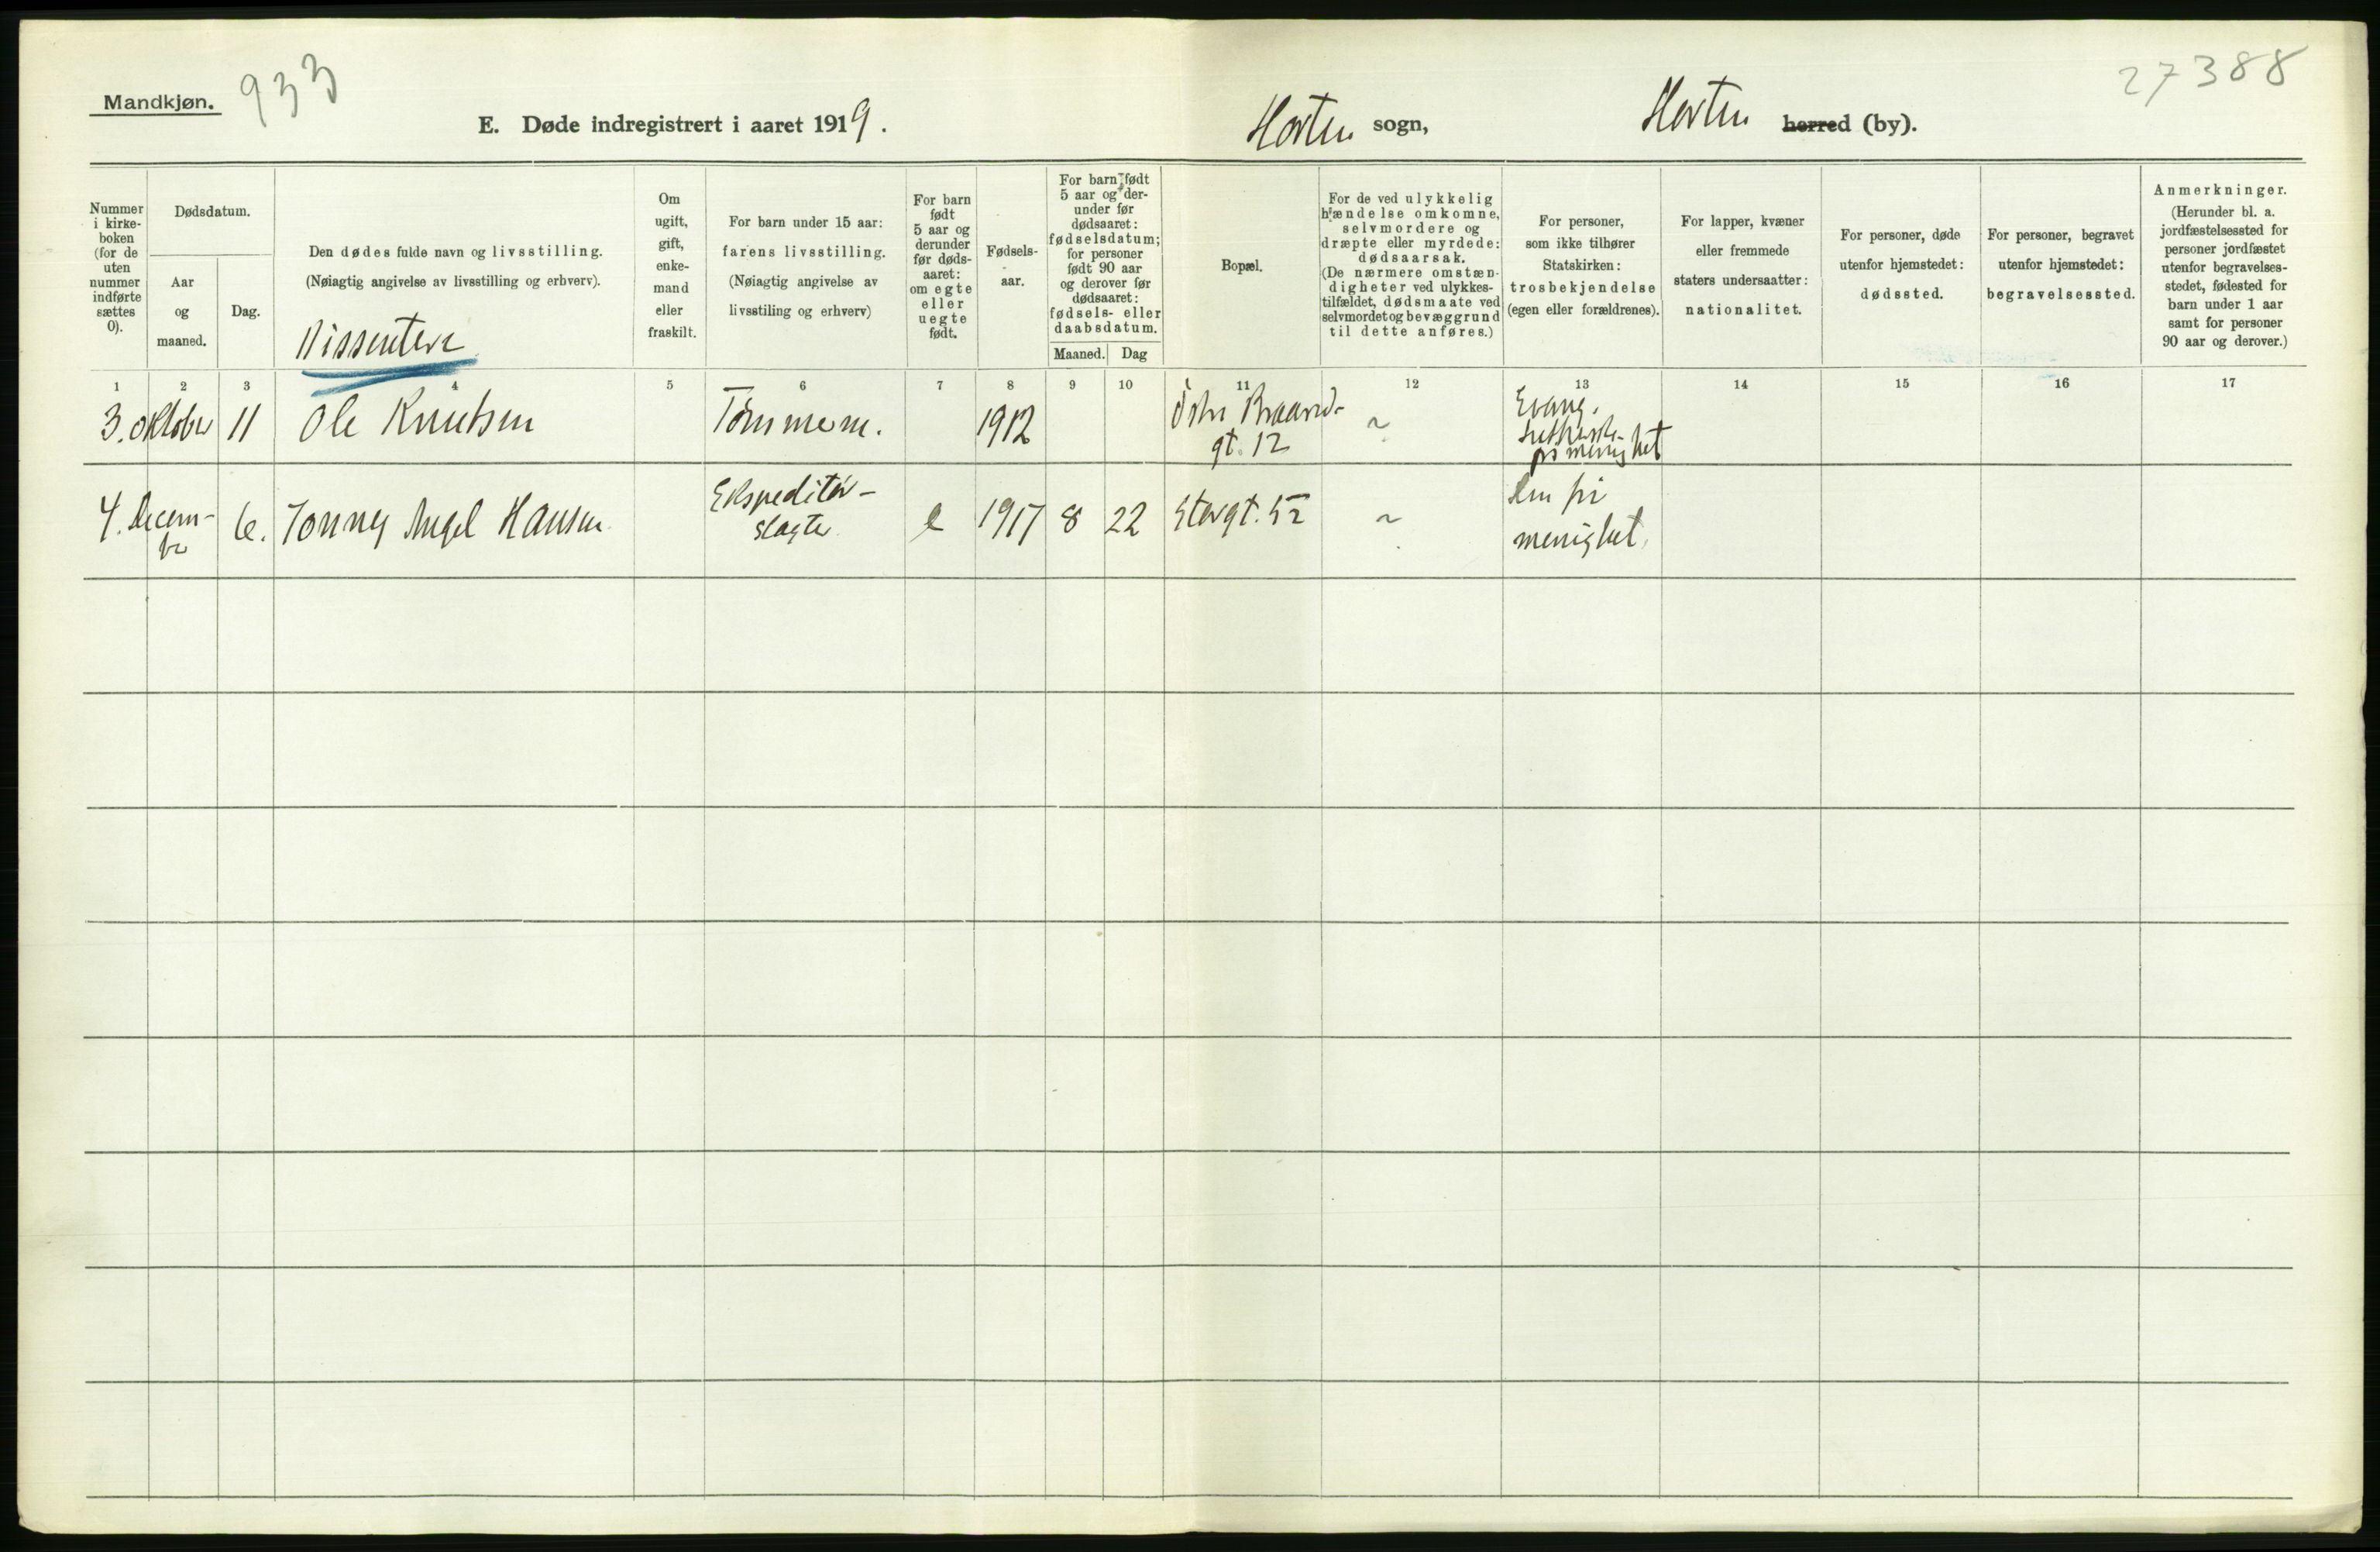 Mandkjøn.
933
27388
E. Døde indregistrert i aaret 1919.
Horten sogn,
Horten herred (by).
Nummer
i kirke-
boken
(for de
uten
nummer
indførte
sættes
0).
Dødsdatum.
Aar
og
maaned.
Dag.
Den dødes fulde navn og livsstilling.
(Nøiagtig angivelse av livsstilling og erhverv).
Dissentere
Om
ugift,
gift,
enke-
mand
eller
fraskilt.
For barn under 15 aar:
farens livsstilling.
(Nøiagtig angivelse av
livsstiling og erhverv)
For barn
født
5 aar og
derunder
før døds-
aaret:
om egte
eller
uegte
født.
Fødsels-
aar.
For barn født
5 aar og der-
under før
dødsaaret:
fødselsdatum;
for personer
født 90 aar
og derover før
dødsaaret:
fødsels- eller
daabsdatum.
Maaned. Dag
Bopæl.
For de ved ulykkelig
hændelse omkomne,
selvmordere og
dræpte eller myrdede:
dødsaarsak.
(De nærmere omstæn-
digheter ved ulykkes-
tilfældet, dødsmaate ved
selvmordet og bevæggrund
til dette anføres.)
For personer,
som ikke tilhører
Statskirken:
trosbekjendelse
(egen eller forældrenes).
For lapper, kvæner
eller fremmede
staters undersaatter:
nationalitet.
For personer, døde
utenfor hjemstedet:
dødssted.
For personer, begravet
utenfor hjemstedet:
begravelsessted.
Anmerkninger.
(Herunder bl. a.
jordfæstelsessted for
personer jordfæstet
utenfor begravelses-
stedet, fødested for
barn under 1 aar
samt for personer
90 aar og derover.)
1 2 3 4 5 6 7 8 9 10 11 12 13 14 15 16 17
3. oktober 11 Ole Knutsen Tømmerm. 1912
gt. 12
~
Evang.
luthersk-
frimenighet
4. Decem-
ber
6. Tonny Angel Hansen
Ekspeditør-
slagter
e 1917 8 22 Storgt. 52 ~
Den fri
menighet.